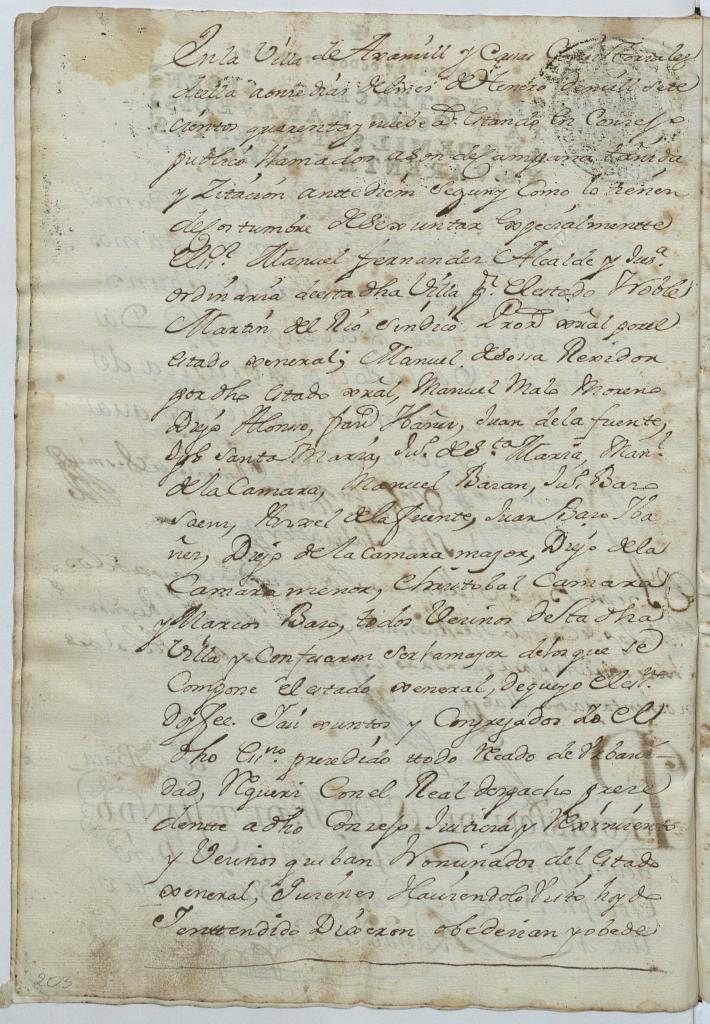 En la Villa de Aramill y Casas Consistoriales
de ella a onze dias del mes de Henero de mill sete
cientos quarenta y nuebe a.s Estando en Conzejo
publico llamados a son de campana tañida
y Zitacion antte diem segun y Como lo tienen
de costumbre de se xuntar Expecialmentte
el S.r Manuel fernandez Alcalde y Jus.a
ordinaria de esta dha Villa p.r el estado Noble
Martin del Rio Sindico Pror. xral por el
estado xeneral; Manuel de Sossa Rexidor
por dho estado xral, Manuel Malo Moreno
Diego Alonso, fran.co Ybañez, Juan de la fuente,
Jph Santa Maria, Ju.o de S.ta Maria, Man.l
de la Camara, Manuel Bazan, Ju.o Bazo
Saenz, Anxel de la fuente, Juan Bazo Iba
ñez, Diego de la Camara mayor, Diego de la
Camara menor, Christobal Camara
y Marcos Bazo, todos Vezinos de esta dha
Villa y Confesaron ser la mayor de los que se
Compone el estado xeneral, de que yo el es.no
Doy fee. I asi xuntos y Congregados Yo el
dho Es.no prezedido ttodo Recado de Urbani
dad, Requeri Con el Real despacho preze
dentte a dho Conzejo Justicia y Reximiento
y Vezinos que ban Nominados del Estado
xeneral, Quienes Haviendolo Visto hoydo
I enttendido Dixeron obedezian y obede
203